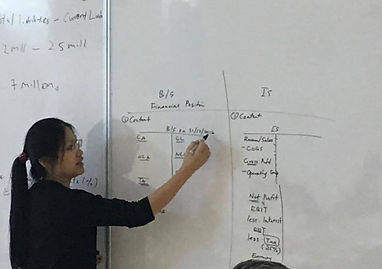 Total liabilities - Current Liabi
2 mill - 2.5 mill
7 million
B/S
Financial Position
① Content
B/S
CA
CL
NCA
NCL
TA
IS
① Content
IS
Revenue/Sales
- COGS
Gross Profit
- Operating
Net Profit
EBIT
less: Interest
EBT
less: Tax
Earning